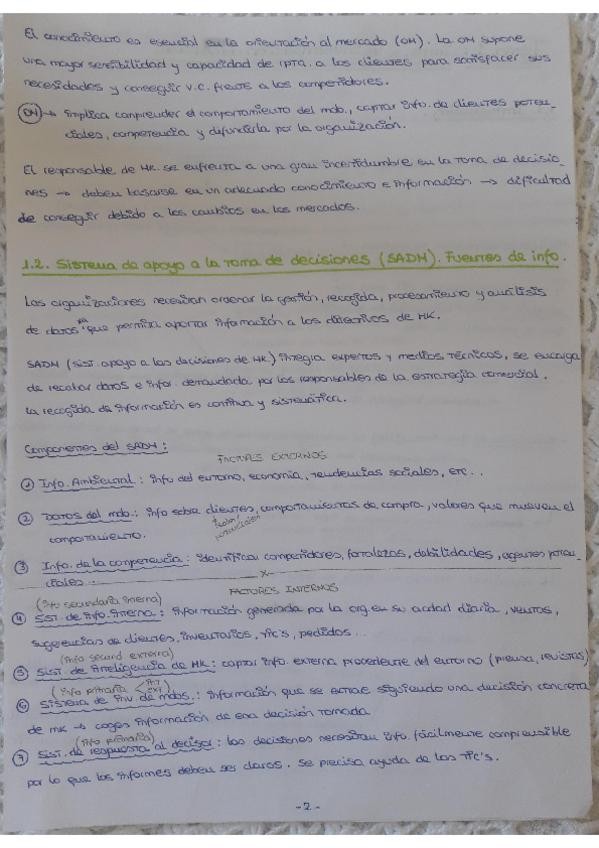 El conocimiento es esencial en la orientación al mercado (OM). La OM supone
una mayor sensibilidad y capacidad de rpta. a los clientes para satisfacer sus
necesidades y conseguir V.C. frente a los competidores.
(OM) → implica comprender el comportamiento del mdo., captar info. de clientes poten-
ciales, competencia y difundirla por la organización.
El responsable de MK. se enfrenta a una gran incertidumbre en la toma de decisio-
nes → deben basarse en un adecuado conocimiento e información → dificultad
de conseguir debido a los cambios en los mercados.
1.2. Sistema de apoyo a la toma de decisiones (SADM). Fuentes de info.
Las organizaciones necesitan ordenar la gestión, recogida, procesamiento y análisis
de datos que permita aportar información a los directivos de MK.
SADM (sist. apoyo a las decisiones de MK.) integra expertos y medios técnicos, se encarga
de recabar datos e infor. demandada por los responsables de la estrategia comercial.
La recogida de información es continua y sistemática.
Componentes del SADM:
FACTORES EXTERNOS
① Info. Ambiental: info del entorno, economía, tendencias sociales, etc...
② Datos del mdo.: info sobre clientes, comportamientos de compra, valores que mueven el
comportamiento.
③ Info. de la competencia: identificar competidores, fortalezas, debilidades, agentes poten-
ciales...
x
FACTORES INTERNOS
(info secundaria interna)
④ Sist. de info. interna: información generada por la org. en su actdad diaria, ventas,
sugerencias de clientes, inventarios, TIC's, pedidos...
(info secund externa)
⑤ Sist. de inteligencia de MK: captar info. externa procedente del entorno (prensa, revistas)
(info primaria < int ext)
⑥ Sistema de inv. de mdos.: información que se extrae siguiendo una decisión concreta
de MK → coges información de una decisión tomada
(info primaria)
⑦ Sist. de respuesta al decisor: las decisiones necesitan info. fácilmente comprensible
por lo que los informes deben ser claros. Se precisa ayuda de las TIC's.
-2-